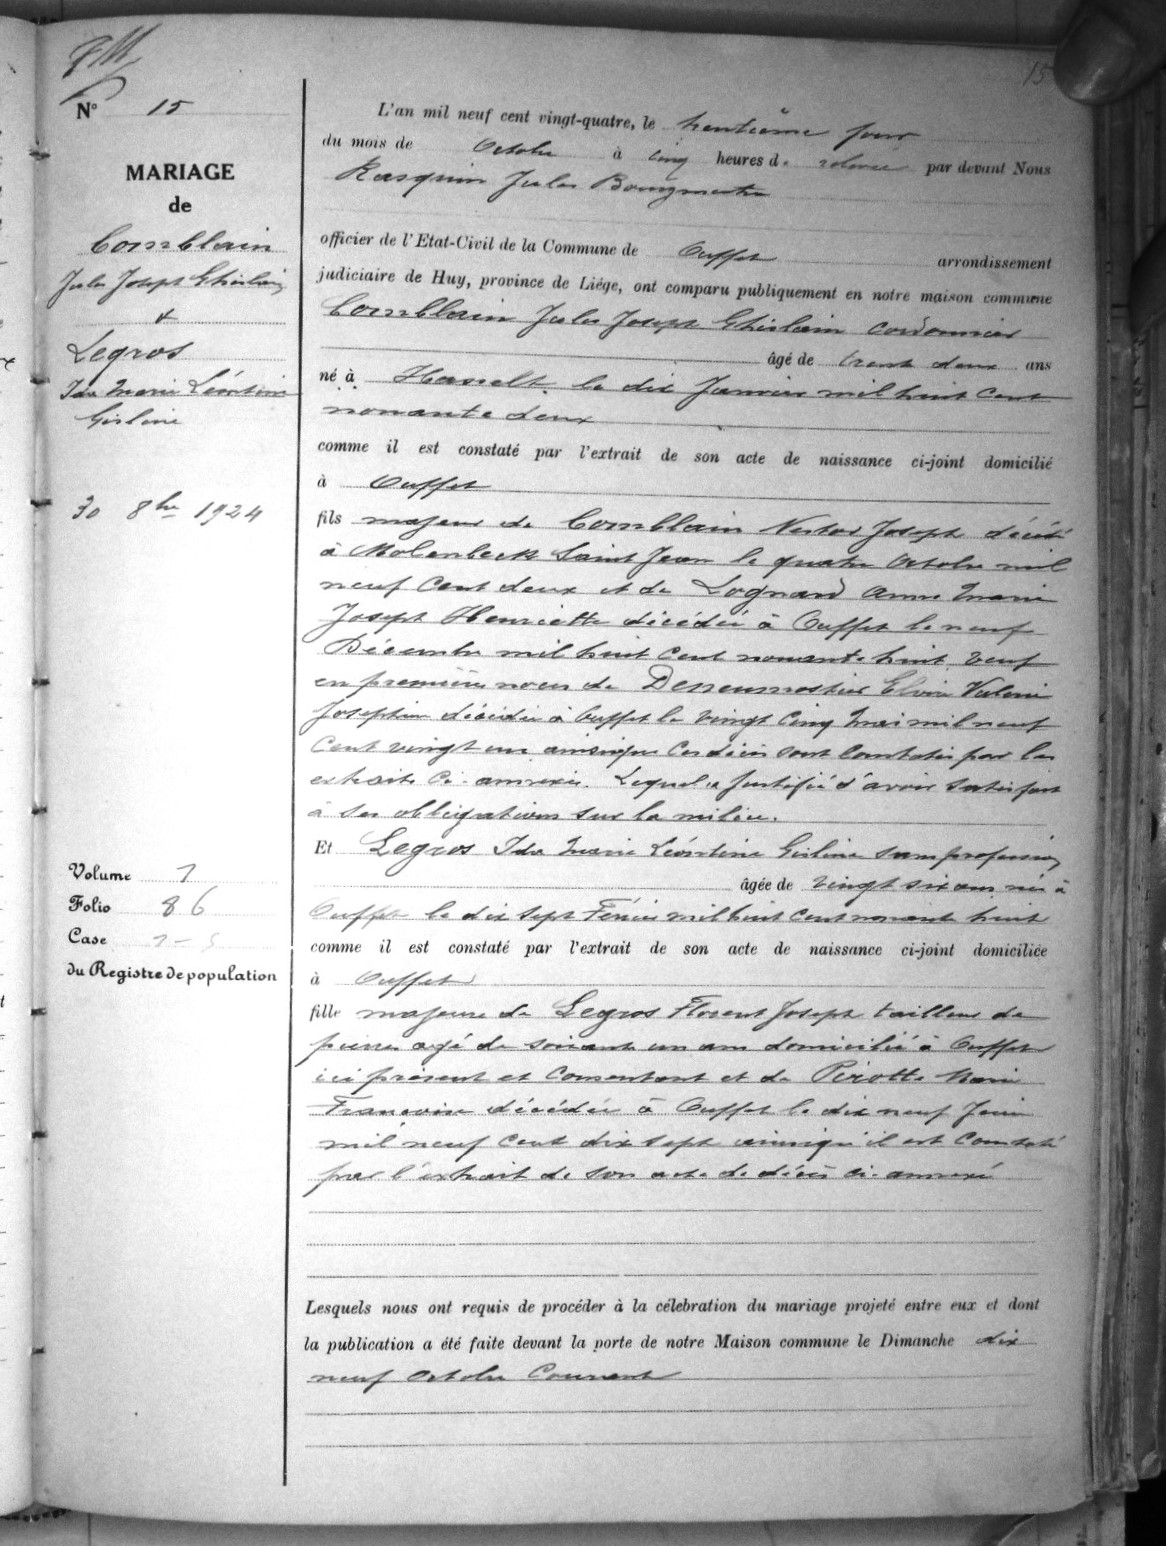 15
N° 15
MARIAGE
de
Comblain
Jules Joseph Ghislain
&
Legros
Ida Marie Léontine
Gisline
30 8bre 1924
Volume 7
Folio 86
Case
du Registre de population
L'an mil neuf cent vingt-quatre, le trentième jour
du mois de Octobre à cinq heures de relevée par devant Nous
Rasquin Jules Bourgmestre
officier de l'Etat-Civil de la Commune de Ouffet arrondissement
judiciaire de Huy, province de Liége, ont comparu publiquement en notre maison commune
Comblain Jules Joseph Ghislain cordonnier
âgé de trente deux ans
né à Hasselt le dix Janvier mil huit cent
nonante deux
comme il est constaté par l'extrait de son acte de naissance ci-joint domicilié
à Ouffet
fils majeur de Comblain Nestor Joseph décédé
à Molenbeek Saint Jean le quatre Octobre mil
neuf cent deux et de Lognard Anne Marie
Joseph Henriette décédée à Ouffet le neuf
Décembre mil huit cent nonante huit, veuf
en premières noces de Elvire Valerie
Josephine décédée à Ouffet le vingt cinq Mai mil neuf
cent vingt un ainsique ces décès sont constatés par les
extraits ci-annexés. Lequel a justifié d'avoir satisfait
à ses obligations sur la milice.
Et Legros Ida Marie Léontine Gisline sans profession
âgée de vingt six ans née à
Ouffet le dix sept Février mil huit cent nonante huit
comme il est constaté par l'extrait de son acte de naissance ci-joint domiciliée
à Ouffet
fille majeure de Legros Florent Joseph tailleur de
pierres agé de soixante un ans domicilié à Ouffet
ici présent et consentant et de Pirotte Marie
Françoise décédée à Ouffet le dix neuf Juin
mil neuf cent dix sept ainsiqu'il est constaté
par l'extrait de son acte de décès ci-annexé
Lesquels nous ont requis de procéder à la célebration du mariage projeté entre eux et dont
la publication a été faite devant la porte de notre Maison commune le Dimanche dix
neuf Octobre Courant